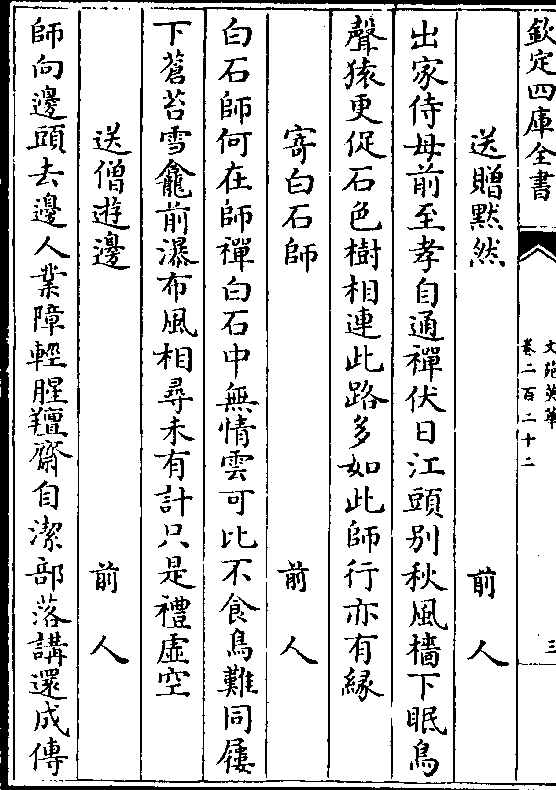 欽定四庫全書
文苑英華
卷二百二十二
三
送贈黙然
前人
出家侍母前至孝自通禪伏日江頭别秋風檣下眠鳥
聲猿更促石色樹相連此路多如此師行亦有緣
寄白石師
前人
白石師何在師禪白石中無情雲可比不食鳥難同屐
下蒼苔雪龕前瀑布風相尋未有計只是禮虛空
送僧遊邊
前人
師向邊頭去邊人業障輕腥羶齋自潔部落講還成傳